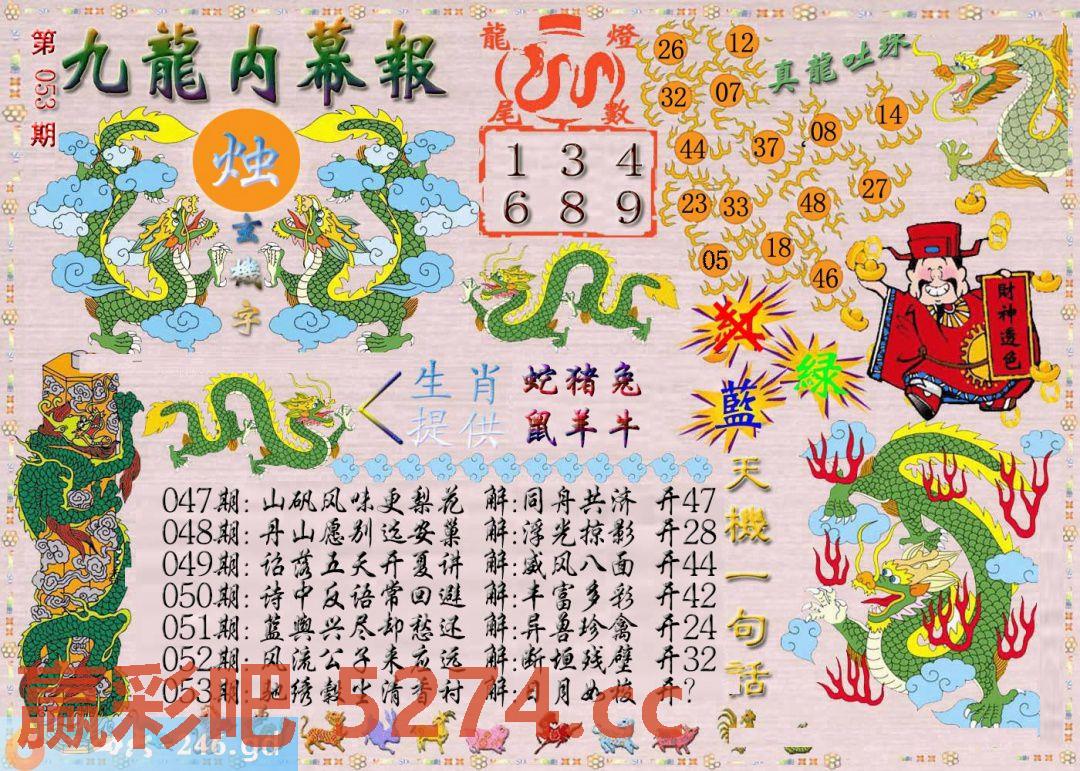 第053期
九龍内幕報
烛
玄機字
龍燈
尾數
1 3 4
6 8 9
真龍吐珠
26 12
32 07
44 37 08 14
23 33 48 27
05 18 46
財神透色
红
綠
藍
生肖提供
蛇猪兔
鼠羊牛
天機一句話
047期:山矾风味更梨花 解:同舟共济 开47
048期:丹山愿别远安巢 解:浮光掠影 开28
049期:诏落五天开夏讲 解:威风八面 开44
050期:诗中反语常回避 解:丰富多彩 开42
051期:蓝舆兴尽却愁还 解:异兽珍禽 开24
052期:风流公子来应远 解:断垣残壁 开32
053期:绣毂 清香村 解:日月如梭 开?
赢彩吧 5274.cc
246.gd